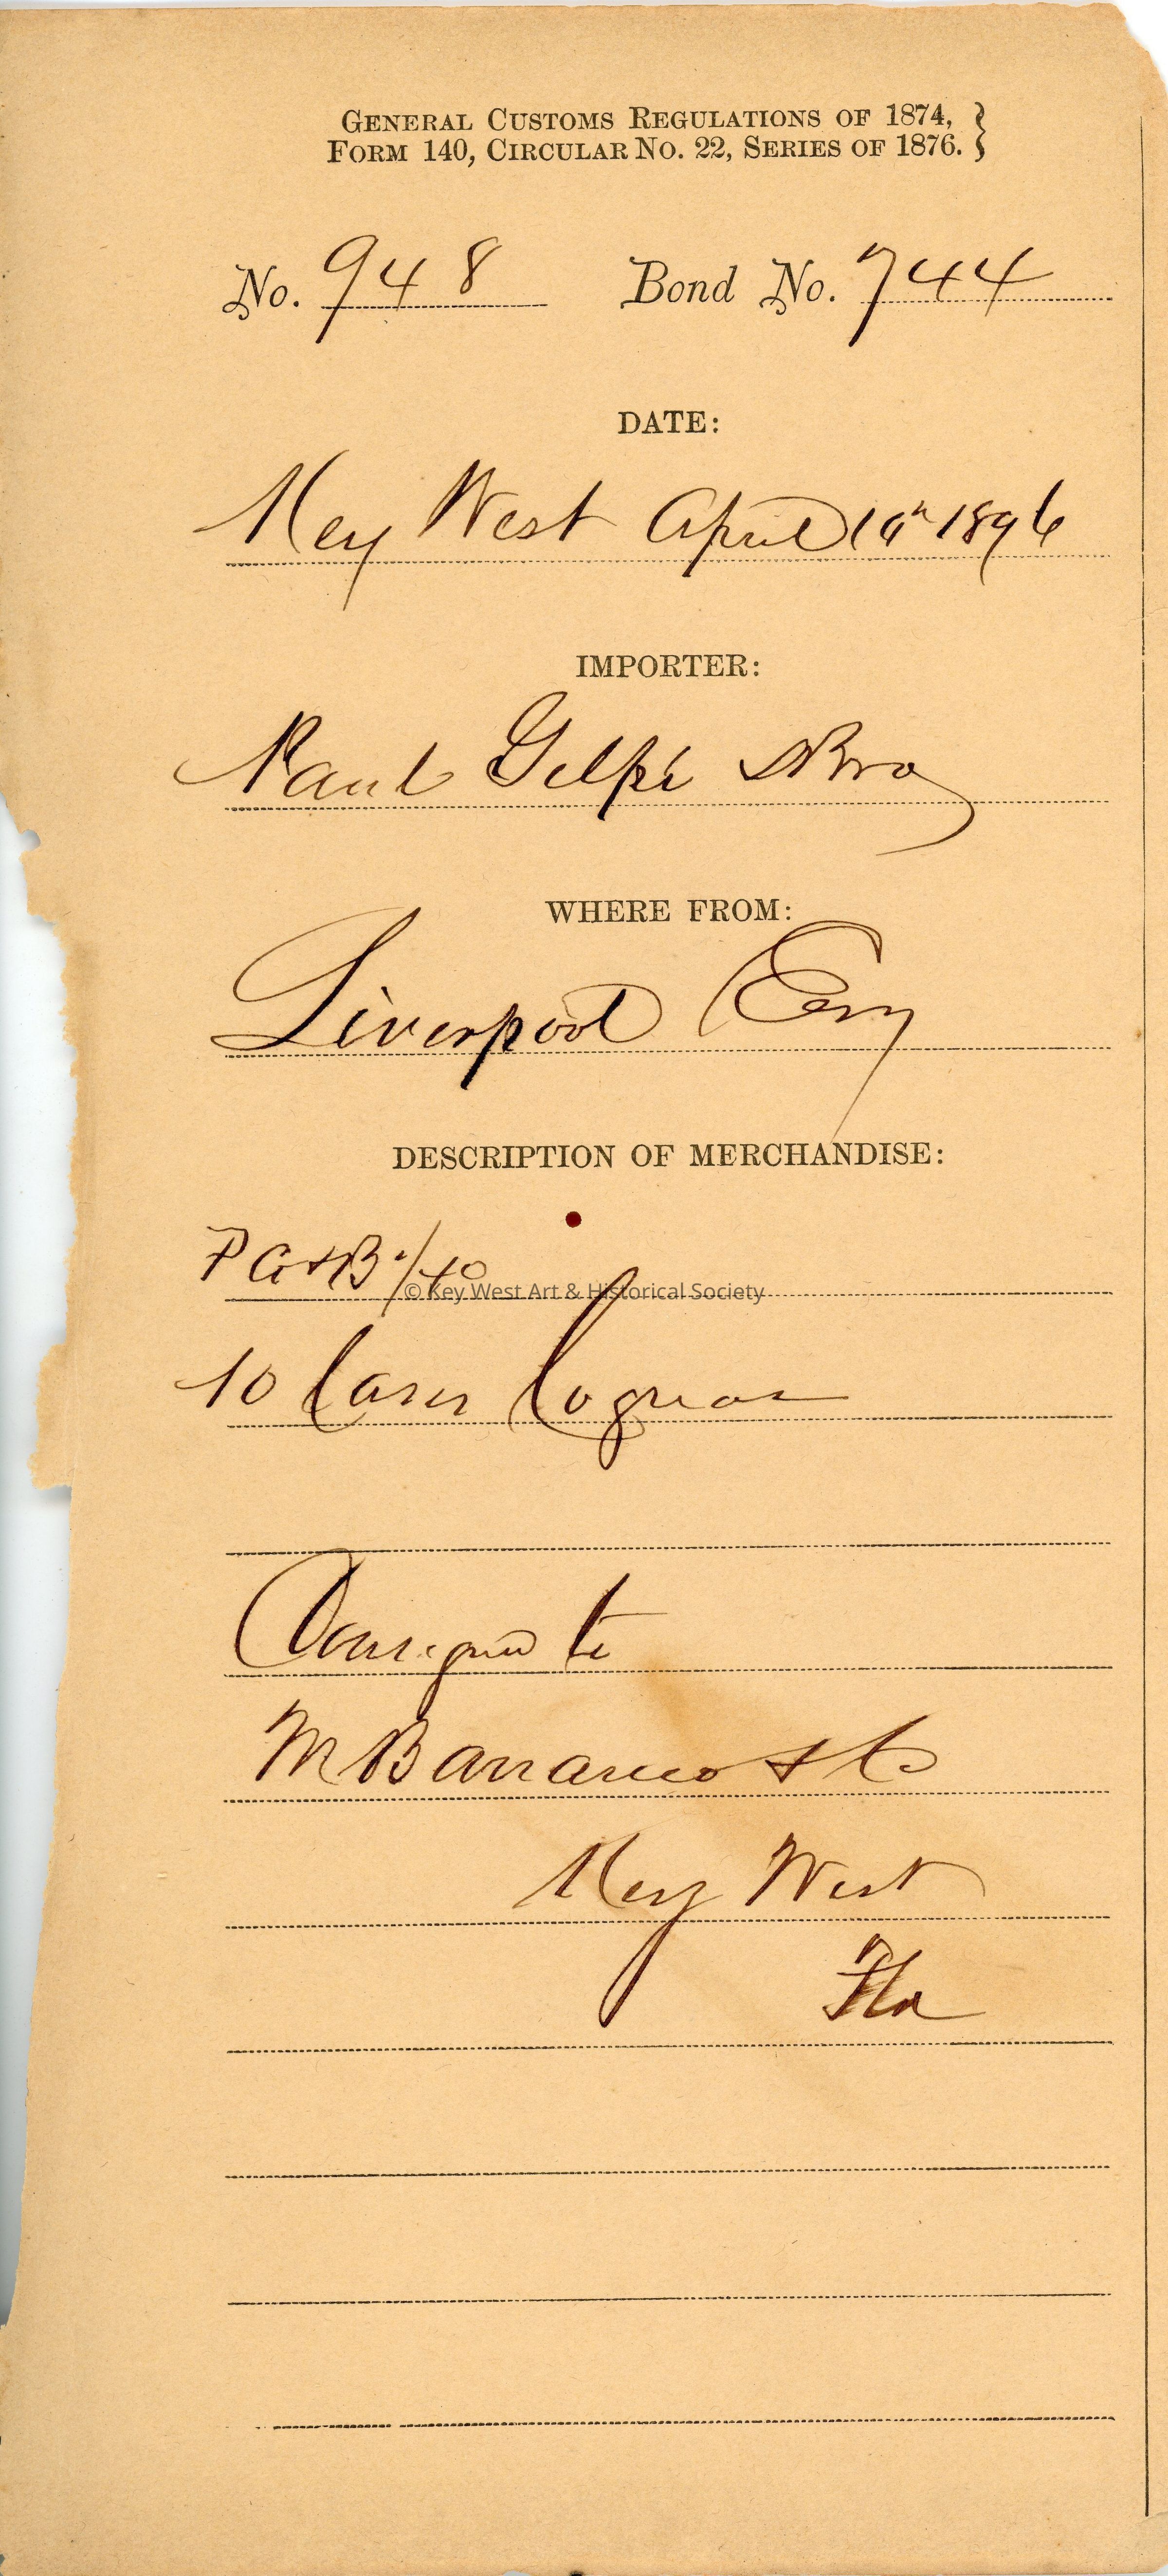 GENERAL CUSTOMS REGULATIONS OF 1874, }
FORM 140, CIRCULAR NO. 22, SERIES OF 1876. }
No. 948 Bond No. 744
DATE:
Key West April 1896
IMPORTER:
Paul Gelpi & Bro
WHERE FROM:
Liverpool Eng
DESCRIPTION OF MERCHANDISE:
P G & B 1/10
© Key West Art & Historical Society
10 Cases Cognac
Consigned to
M Barranco & Co
Key West
Fla